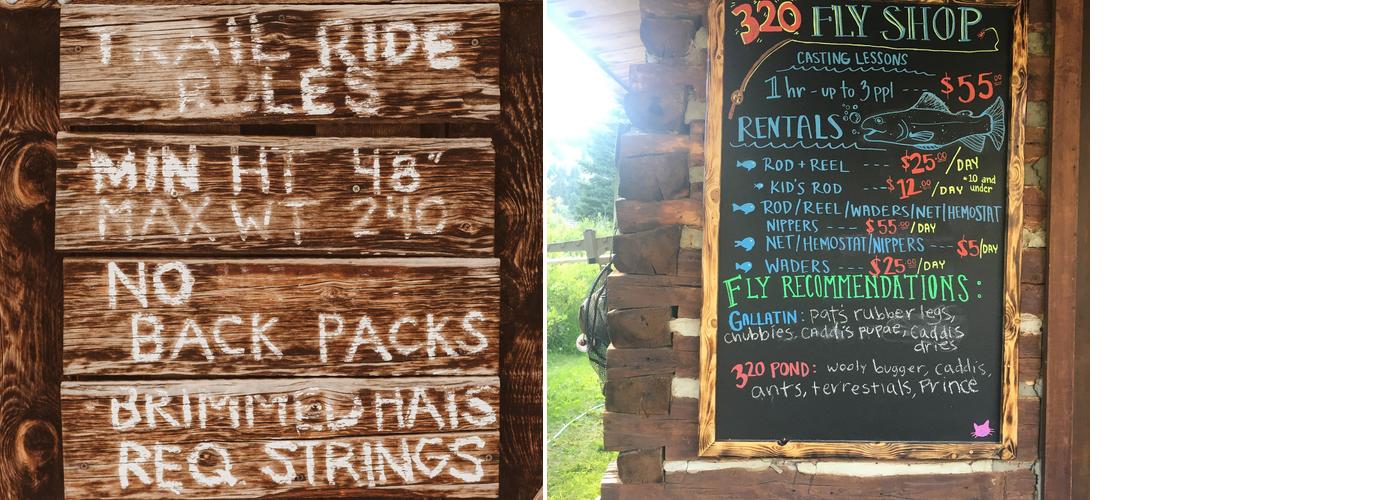 TRAIL RIDE
RULES
MIN HT 48"
MAX WT 240
NO
BACK PACKS
BRIMMED HATS
REQ. STRINGS
320 FLY SHOP
CASTING LESSONS
1 hr - up to 3 ppl --- $55.00
RENTALS
ROD + REEL --- $25.00/DAY
KID'S ROD ---$12.00/DAY *10 and under
ROD/REEL/WADERS/NET/HEMOSTAT
NIPPERS --- $55.00/DAY
NET/HEMOSTAT/NIPPERS --- $5/DAY
WADERS --- $25.00/DAY
FLY RECOMMENDATIONS:
GALLATIN: pats rubber legs,
chubbies, caddis pupae, caddis
dries
320 POND: wooly bugger, caddis,
ants, terrestials, Prince